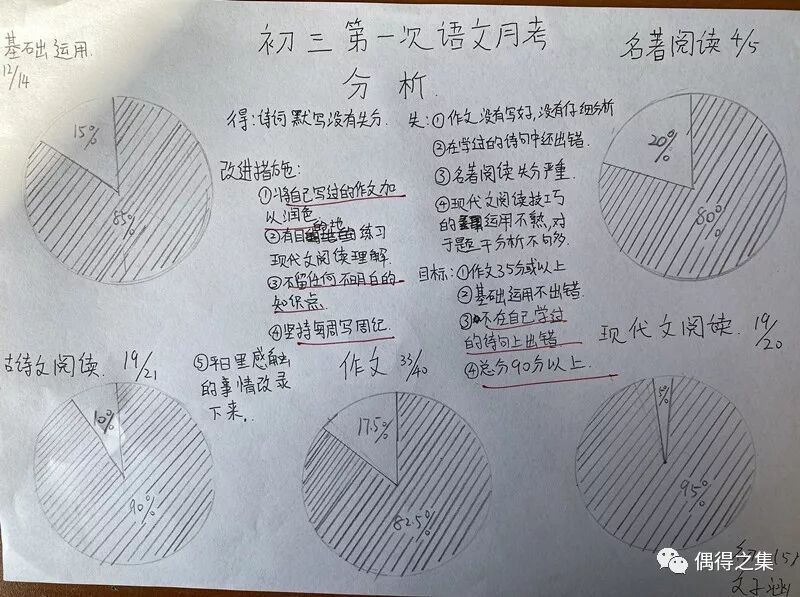 初三第一次语文月考
分析.
基础运用.
12/14
15%
85%
名著阅读 4/5
20%
80%
得:诗词默写没有失分.
失:①作文没有写好,没有仔细分析
②在学过的诗句中还出错.
③名著阅读失分严重.
④现代文阅读技巧
的运用不熟,对
于题干分析不够多.
改进措施:
①将自己写过的作文加
以润色
②有目的地练习
现代文阅读理解.
③不留任何不明白的
知识点.
④坚持每周写周纪.
⑤平日里感触
的事情改录
下来.
目标:①作文35分或以上
②基础运用不出错.
③不在自己学过
的诗句上出错.
④总分90分以上.
古诗文阅读. 19/21
10%
90%
作文 33/40
17.5%
82.5%
现代文阅读. 19/20
5%
95%
偶得之集